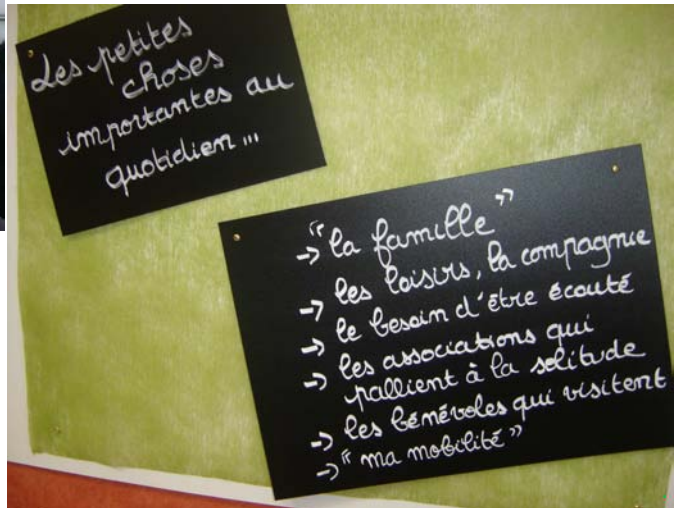 Les petites
choses
importantes au
quotidien ...
→ "la famille"
→ les loisirs, la compagnie
→ le besoin d'être écouté
→ les associations qui
pallient à la solitude
→ les bénévoles qui visitent
→ "ma mobilité"